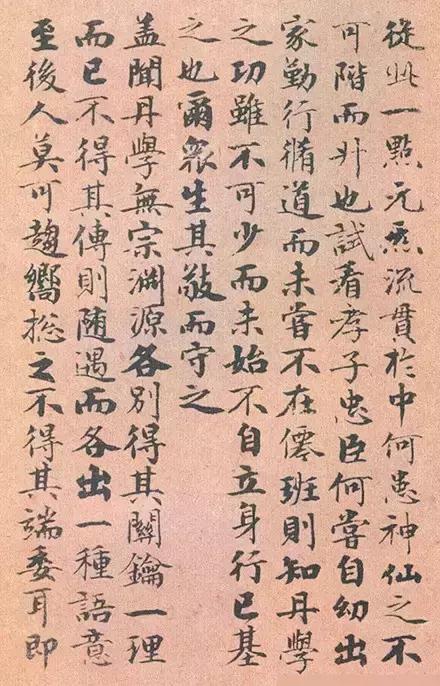 從此一點元炁流貫於中何患神仙之不
可階而升也試看孝子忠臣何嘗自幼出
家勤行脩道而未嘗不在僊班則知丹學
之功雖不可少而未始不自立身行已基
之也爾衆生其敬而守之
盖聞丹學無宗淵源各別得其關鑰一理
而已不得其傳則随遇而各出一種語意
至後人莫可趨嚮揔之不得其端委耳即